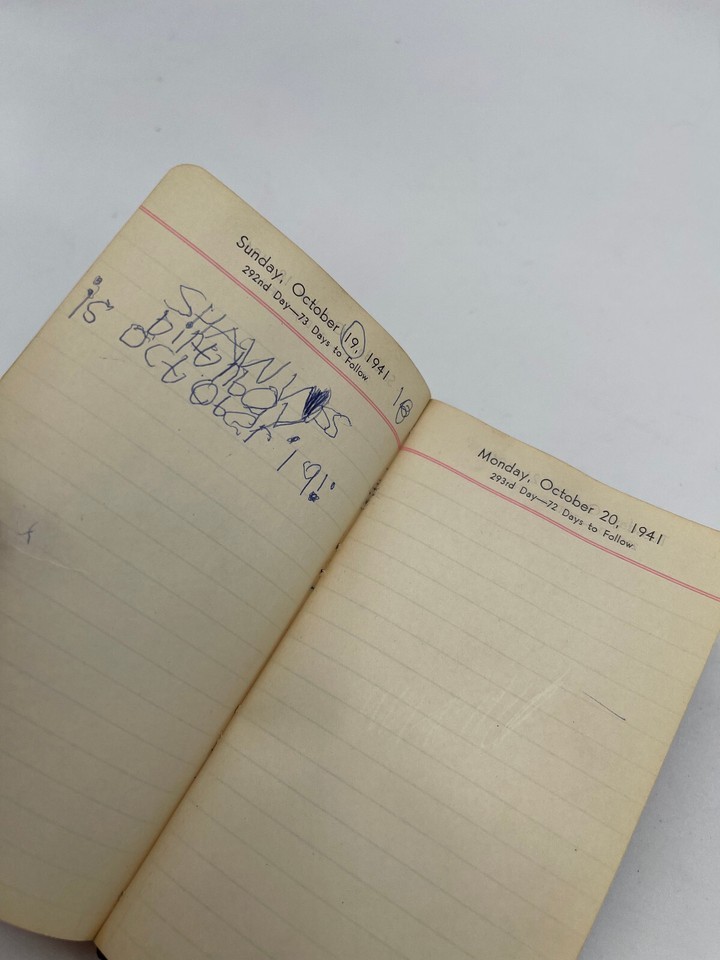 Sunday, October 19, 1941
292nd Day—73 Days to Follow
SHAWN
is Birthday
October 19!
Monday, October 20, 1941
293rd Day—72 Days to Follow